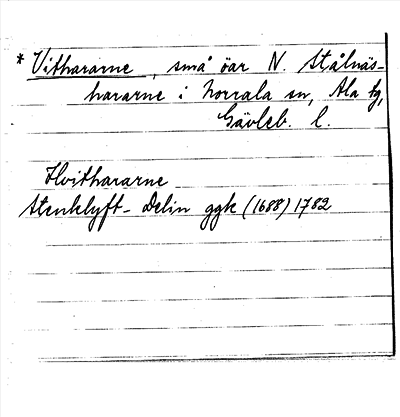 * Vithararne, små öar N. Stålnäs-
hararne i Norrala sn, Ala tg,
Gävleb. l.
Hvithararne
Stenklyft-Delin ggk (1688) 1782